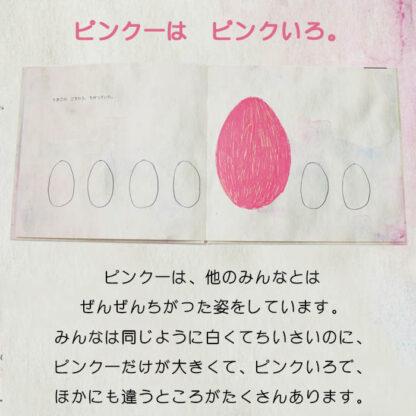 ピンクーは　ピンクいろ。
たまごの ときから、ちがっていた。
ピンクーは、他のみんなとは
ぜんぜんちがった姿をしています。
みんなは同じように白くてちいさいのに、
ピンクーだけが大きくて、ピンクいろで、
ほかにも違うところがたくさんあります。